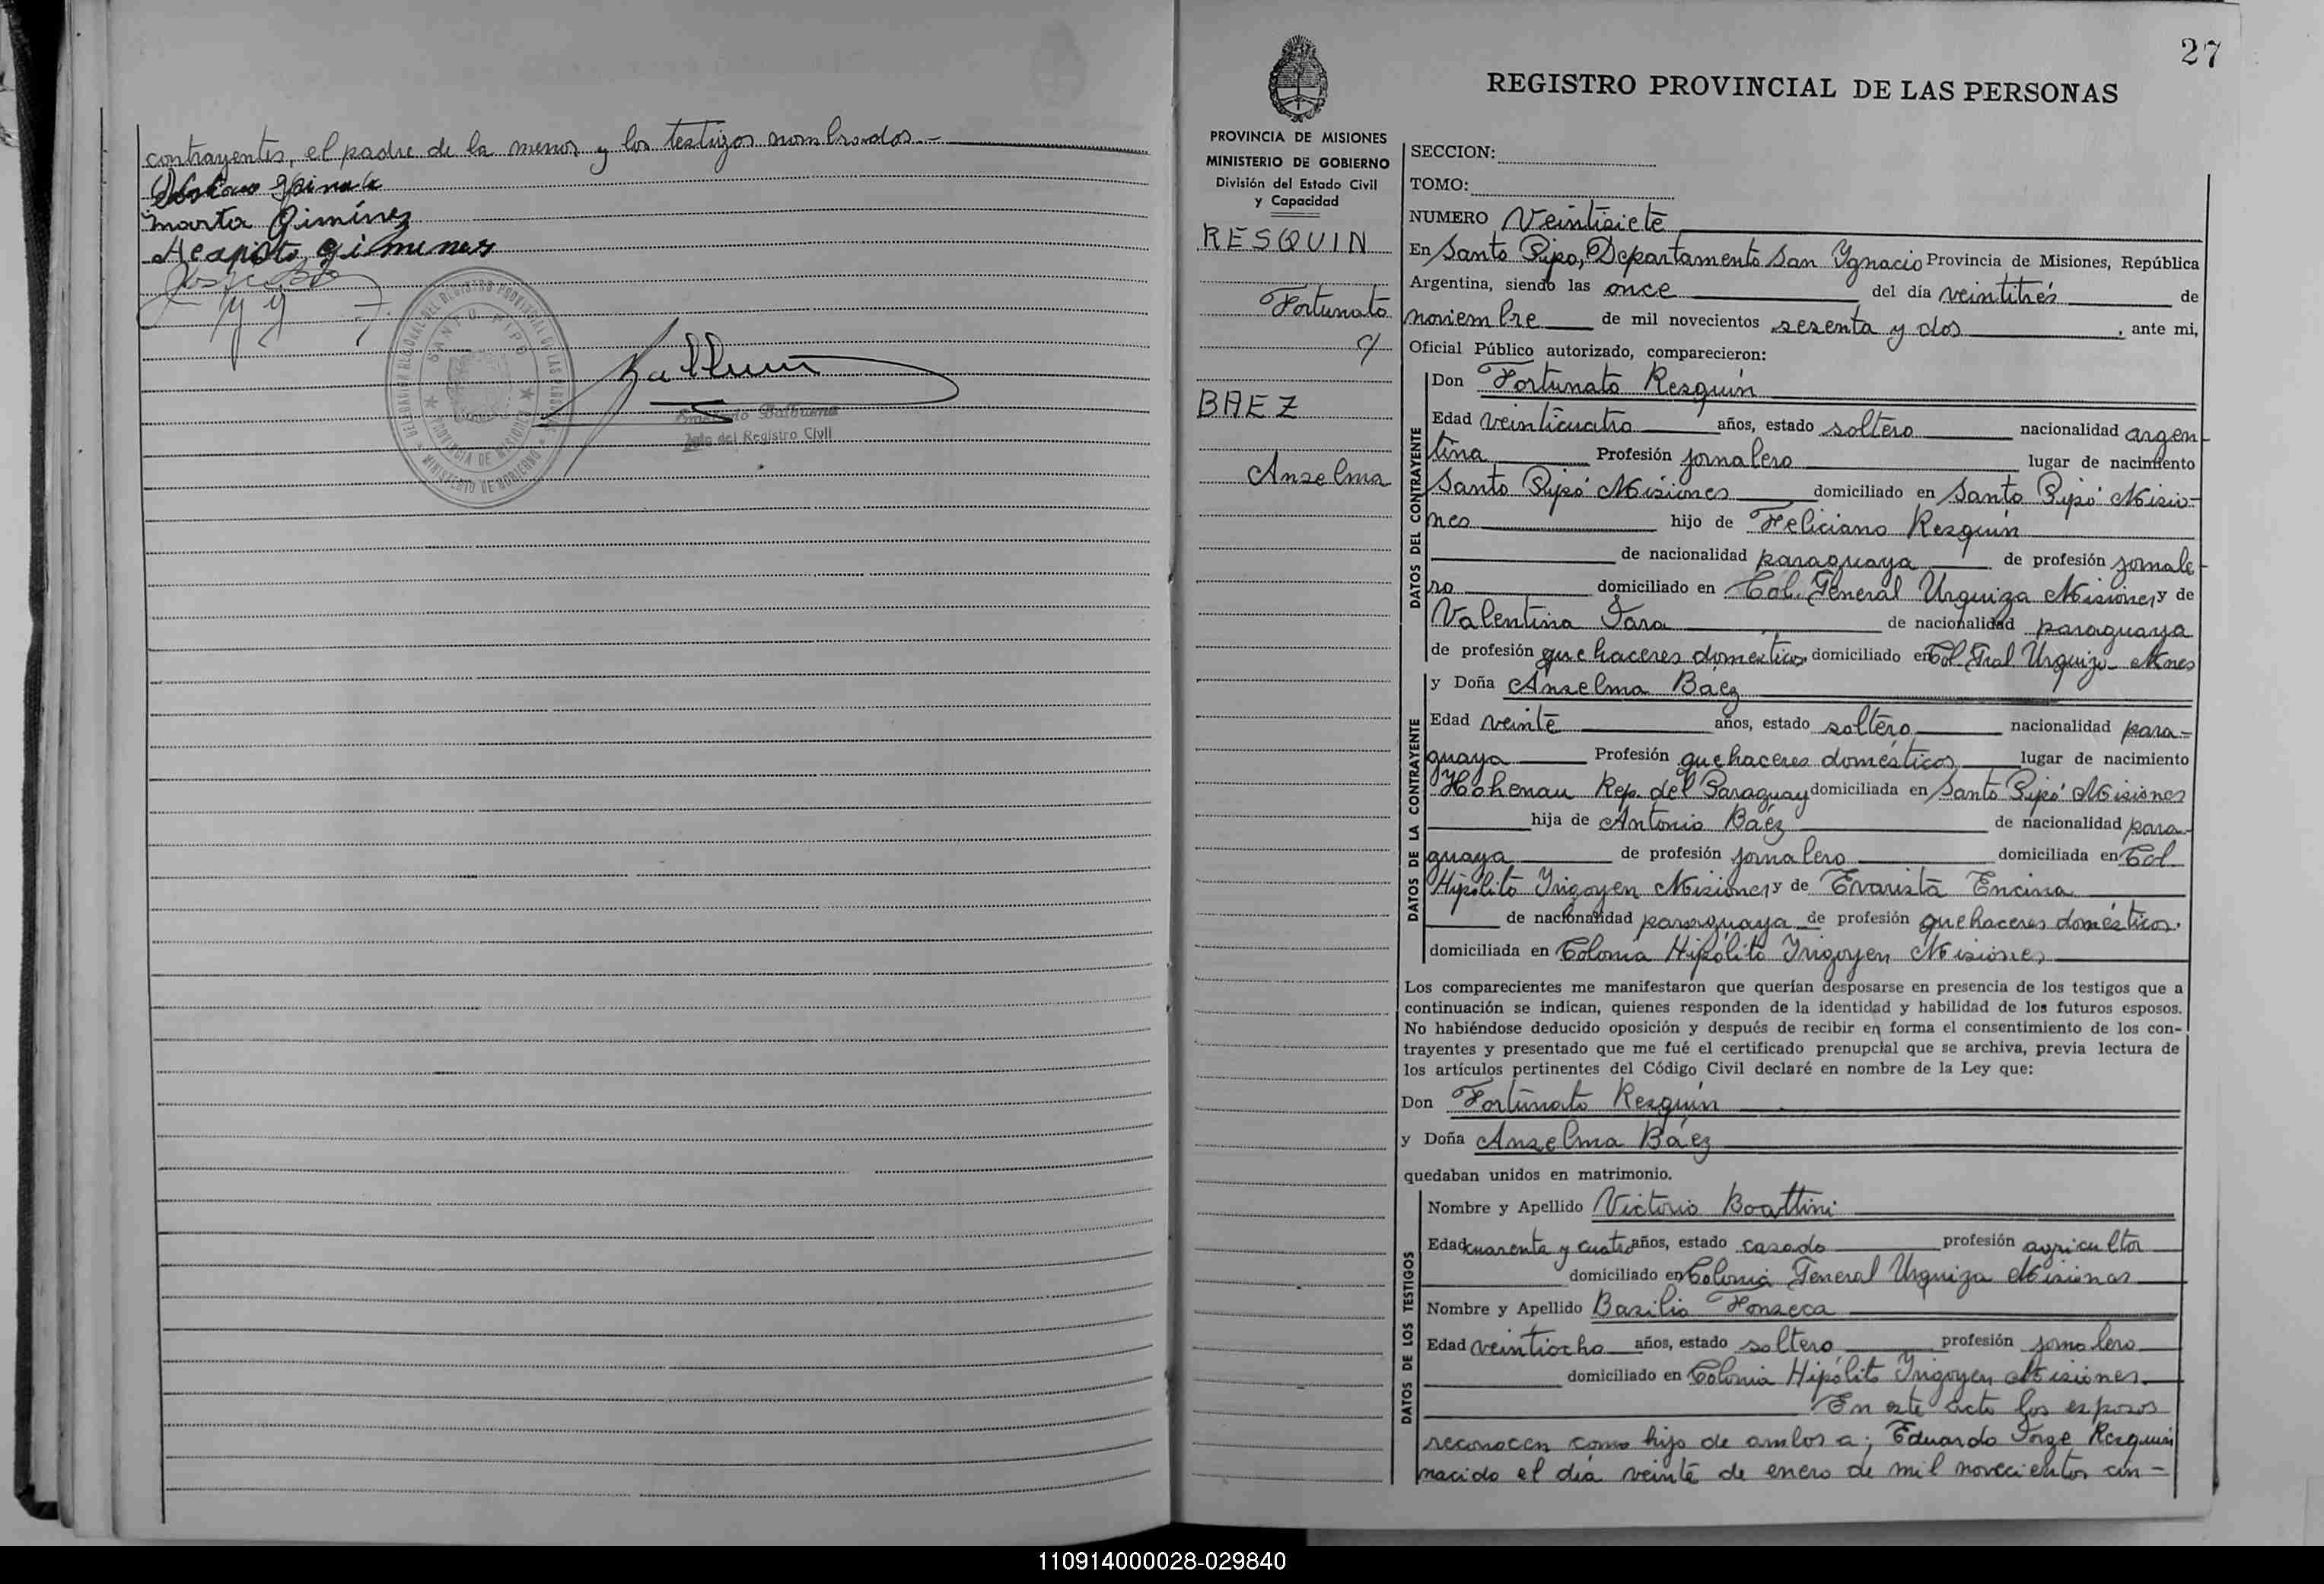 contrayentes, el padre de la menor y los testigos nombrados.-
Marta Giménez
Acapito gimenes
SANTO PIPO
PROVINCIA DE MISIONES
MINISTERIO DE GOBIERNO
Balbuena
Jefe del Registro Civil
27
REGISTRO PROVINCIAL DE LAS PERSONAS
PROVINCIA DE MISIONES
MINISTERIO DE GOBIERNO
División del Estado Civil
y Capacidad
RESQUIN
Fortunato
c/
BAEZ
Anselma
SECCION:
TOMO:
NUMERO Veintisiete
En Santo Pipo, Departamento San Ygnacio Provincia de Misiones, República
Argentina, siendo las once del día veintitrés de
noviembre de mil novecientos sesenta y dos, ante mi,
Oficial Público autorizado, comparecieron:
DATOS DEL CONTRAYENTE
Don Fortunato Resquin
Edad veinticuatro años, estado soltero nacionalidad argen-
tina Profesión jornalero lugar de nacimiento
Santo Pipó Misiones domiciliado en Santo Pipó Misio-
nes hijo de Feliciano Resquin
de nacionalidad paraguaya de profesión jornale-
ro domiciliado en Col. General Urquiza Misiones y de
Valentina Jara de nacionalidad paraguaya
de profesión quehaceres domésticos domiciliado en Col. Gral Urquiza Mnes
DATOS DE LA CONTRAYENTE
y Doña Anselma Baez
Edad veinte años, estado soltero nacionalidad para-
guaya Profesión quehaceres domésticos lugar de nacimiento
Hohenau Rep. del Paraguay domiciliada en Santo Pipó Misiones
hija de Antonio Báez de nacionalidad para-
guaya de profesión jornalero domiciliada en Col
Hipólito Irigoyen Misiones y de Evarista Encina
de nacionalidad paraguaya de profesión quehaceres domésticos.
domiciliada en Colonia Hipólito Irigoyen Misiones
Los comparecientes me manifestaron que querían desposarse en presencia de los testigos que a
continuación se indican, quienes responden de la identidad y habilidad de los futuros esposos.
No habiéndose deducido oposición y después de recibir en forma el consentimiento de los con-
trayentes y presentado que me fué el certificado prenupcial que se archiva, previa lectura de
los artículos pertinentes del Código Civil declaré en nombre de la Ley que:
Don Fortunato Resquin
y Doña Anselma Báez
quedaban unidos en matrimonio.
DATOS DE LOS TESTIGOS
Nombre y Apellido Victorio Boattini
Edad cuarenta y cuatro años, estado casado profesión agricultor
domiciliado en Colonia General Urquiza Misiones
Nombre y Apellido Basilio Fonseca
Edad veintiocho años, estado soltero profesión jornalero
domiciliado en Colonia Hipólito Irigoyen Misiones.
En este acto los esposos
reconocen como hijo de ambos a; Eduardo Jorge Resquin
nacido el día veinte de enero de mil novecientos cin-
110914000028-029840